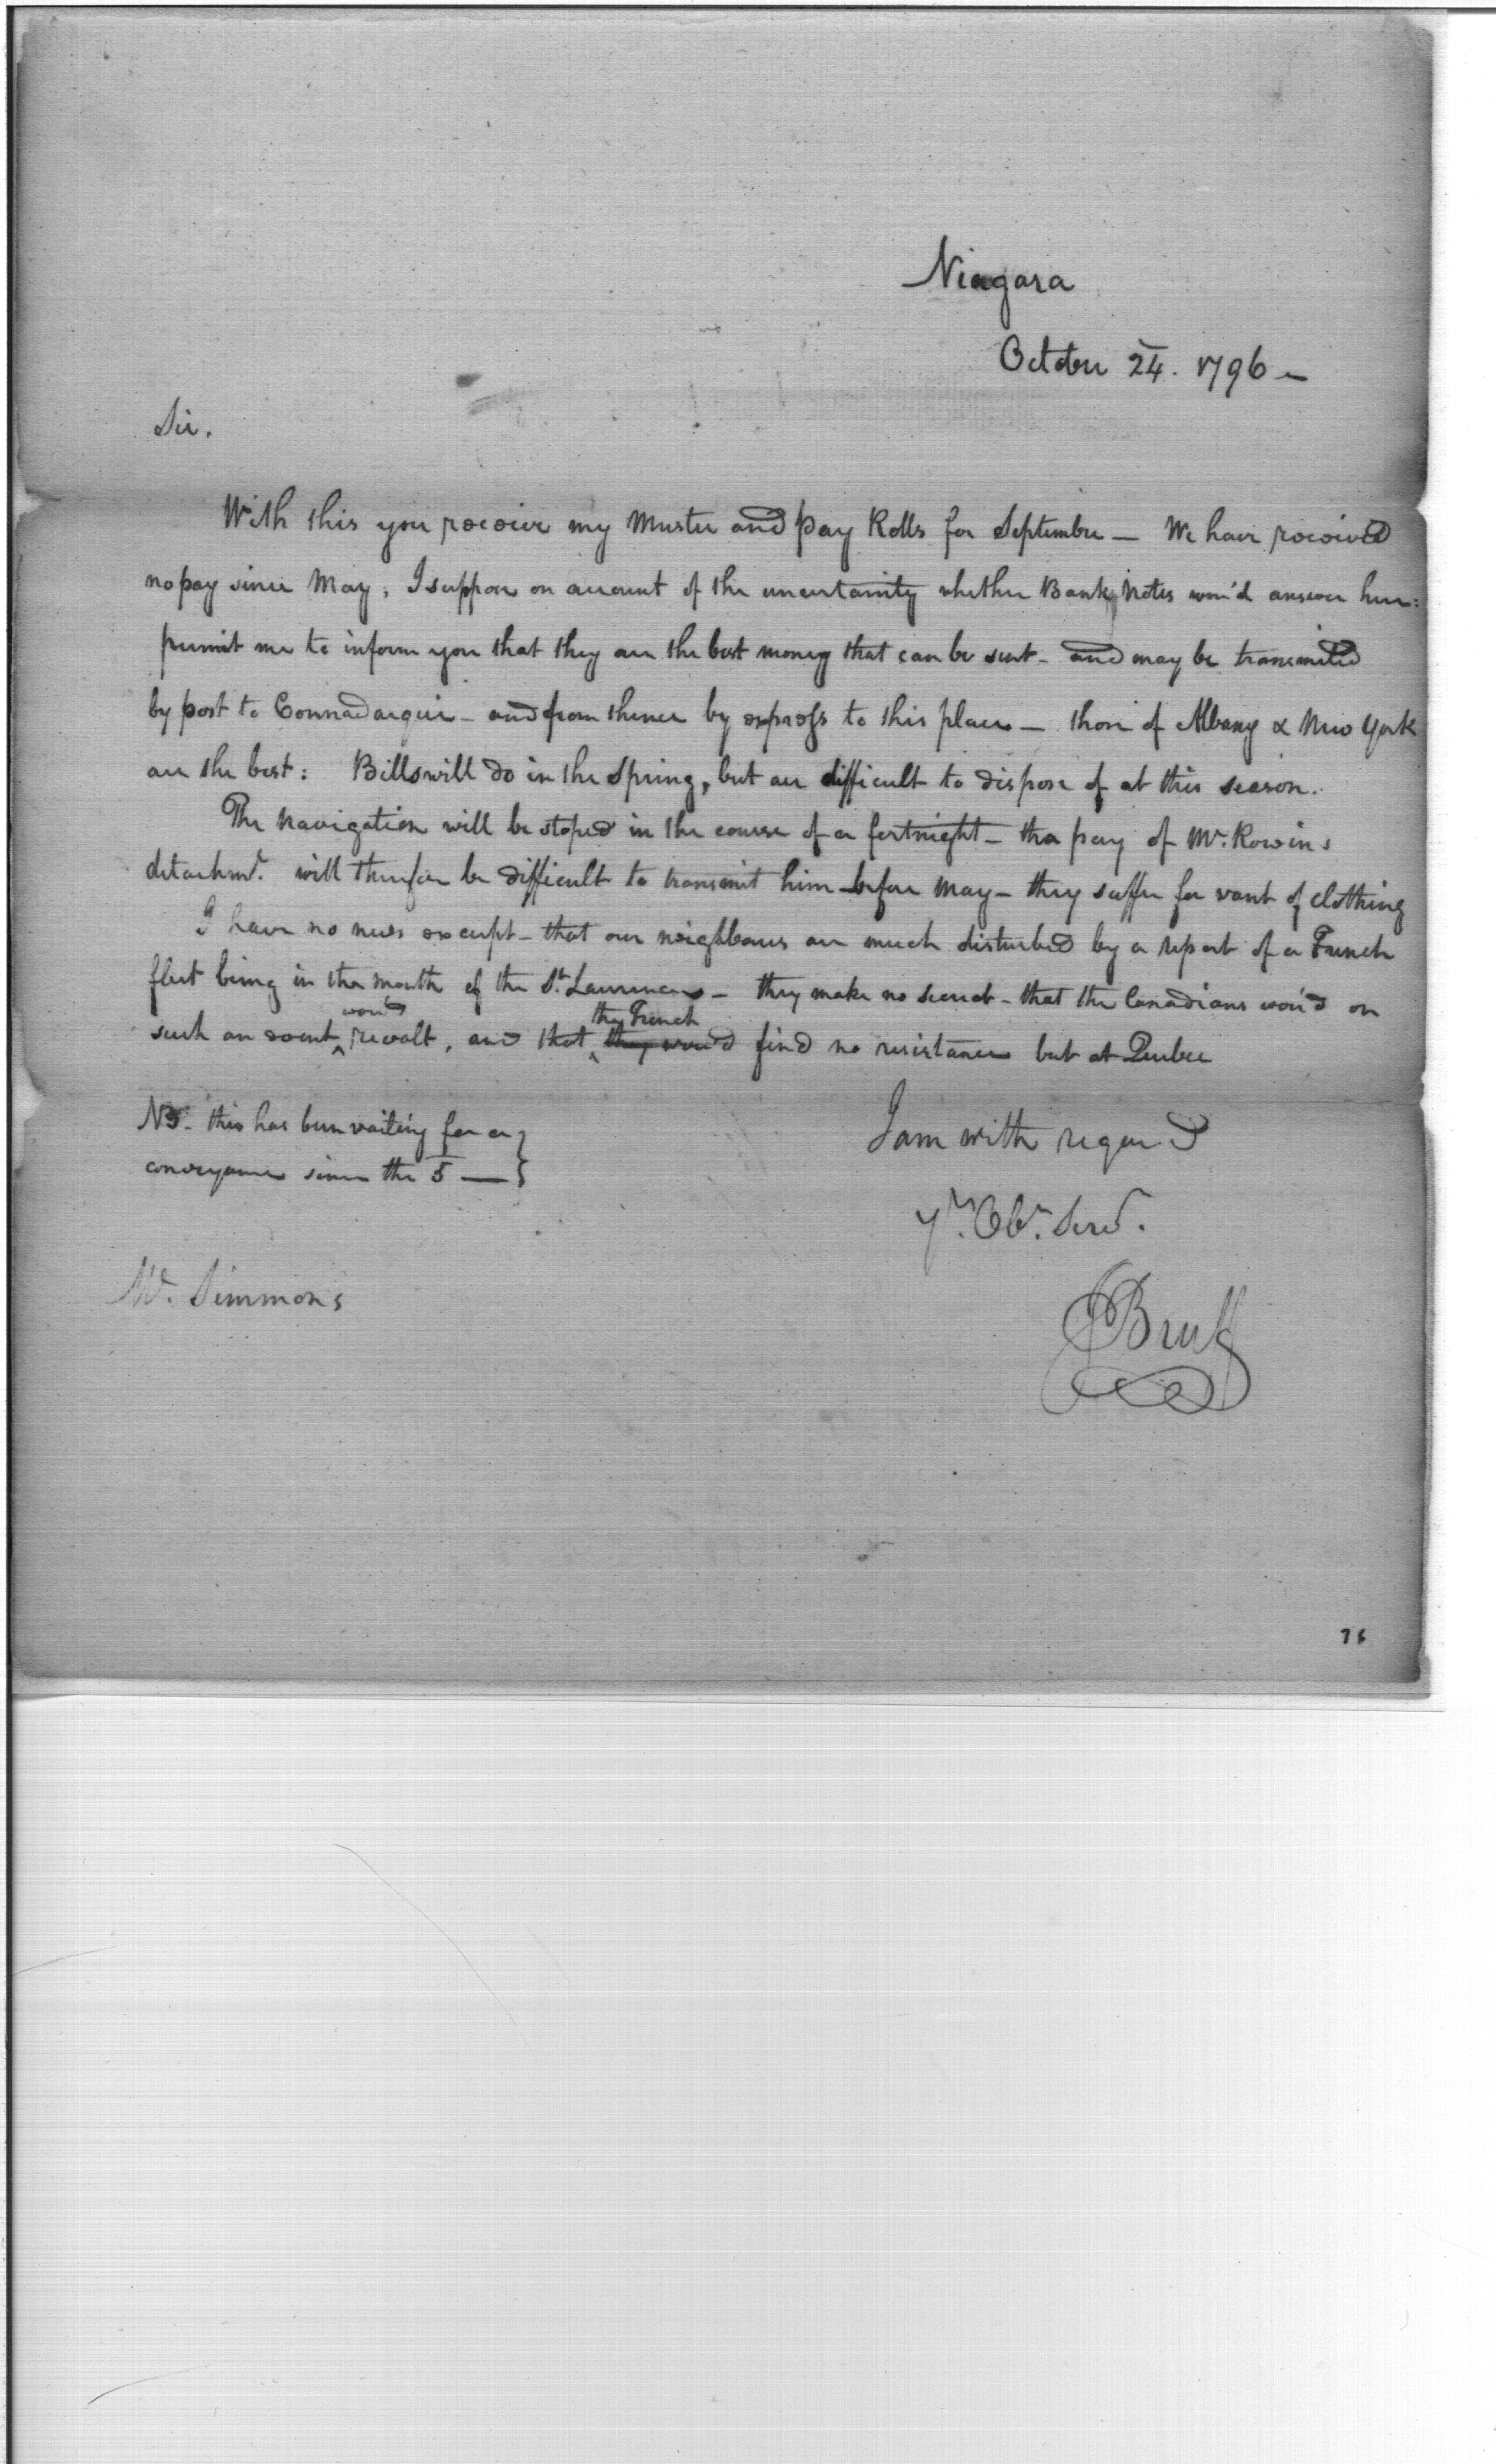 Niagara
October 24. 1796 —
Sir.
With this you receive my Muster and pay Rolls for September — We have received
no pay since May, I suppose on account of the uncertainity whether Bank Notes wou'd answer here:
permit me to inform you that they are the best money that can be sent - and may be transmitted
by post to Connadarquie - and from thence by express to this place — those of Albany & New York
are the best: Bills will do in the Spring, but are difficult to dispose of at this season.
The Navigation will be stoped in the course of a fortnight - the pay of Mr. Rowin s
detachmt. will therefore be difficult to transmit him before May - they suffer for want of clothing
I have no news except - that our neighbours are much disturbed by a report of a French
fleet being in the mouth of the St. Laurence - they make no secret - that the Canadians wou'd on
such an event wou'd revolt, and that the French they wou'd find no resistance but at Quebec
NB. this has been waiting for a
conveyance since the 5 —
I am with regard
Yr. Obt. Servt.
JBruff
Mr. Simmons
76